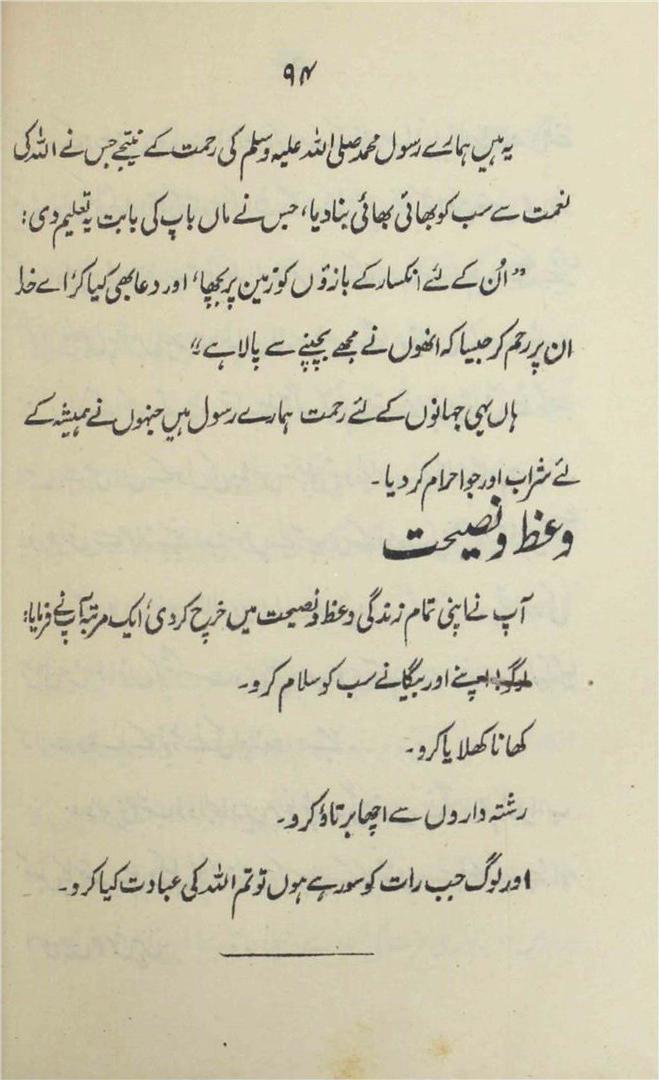 ۹۴
یہ ہیں ہمارے رسول محمد صلی اللہ علیہ وسلم کی رحمت کے نتیجے جس نے اللہ کی
نعمت سے سب کو بھائی بھائی بنا دیا، جس نے ماں باپ کی بابت یہ تعلیم دی:
”اُن کے لئے انکسار کے بازوؤں کو زمین پر بچھا، اور دعا بھی کیا کر، اے خدا
ان پر رحم کر جیسا کہ انھوں نے مجھے بچپنے سے پالا ہے“
ہاں یہی جہانوں کے لئے رحمت ہمارے رسول ہیں جنہوں نے ہمیشہ کے
لئے شراب اور جوا حرام کر دیا۔
وعظ و نصیحت
آپ نے اپنی تمام زندگی وعظ و نصیحت میں خرچ کر دی، ایک مرتبہ آپ نے فرمایا:
لوگو! اپنے اور بیگانے سب کو سلام کرو۔
کھانا کھلایا کرو۔
رشتہ داروں سے اچھا برتاؤ کرو۔
اور لوگ جب رات کو سو رہے ہوں تو تم اللہ کی عبادت کیا کرو۔